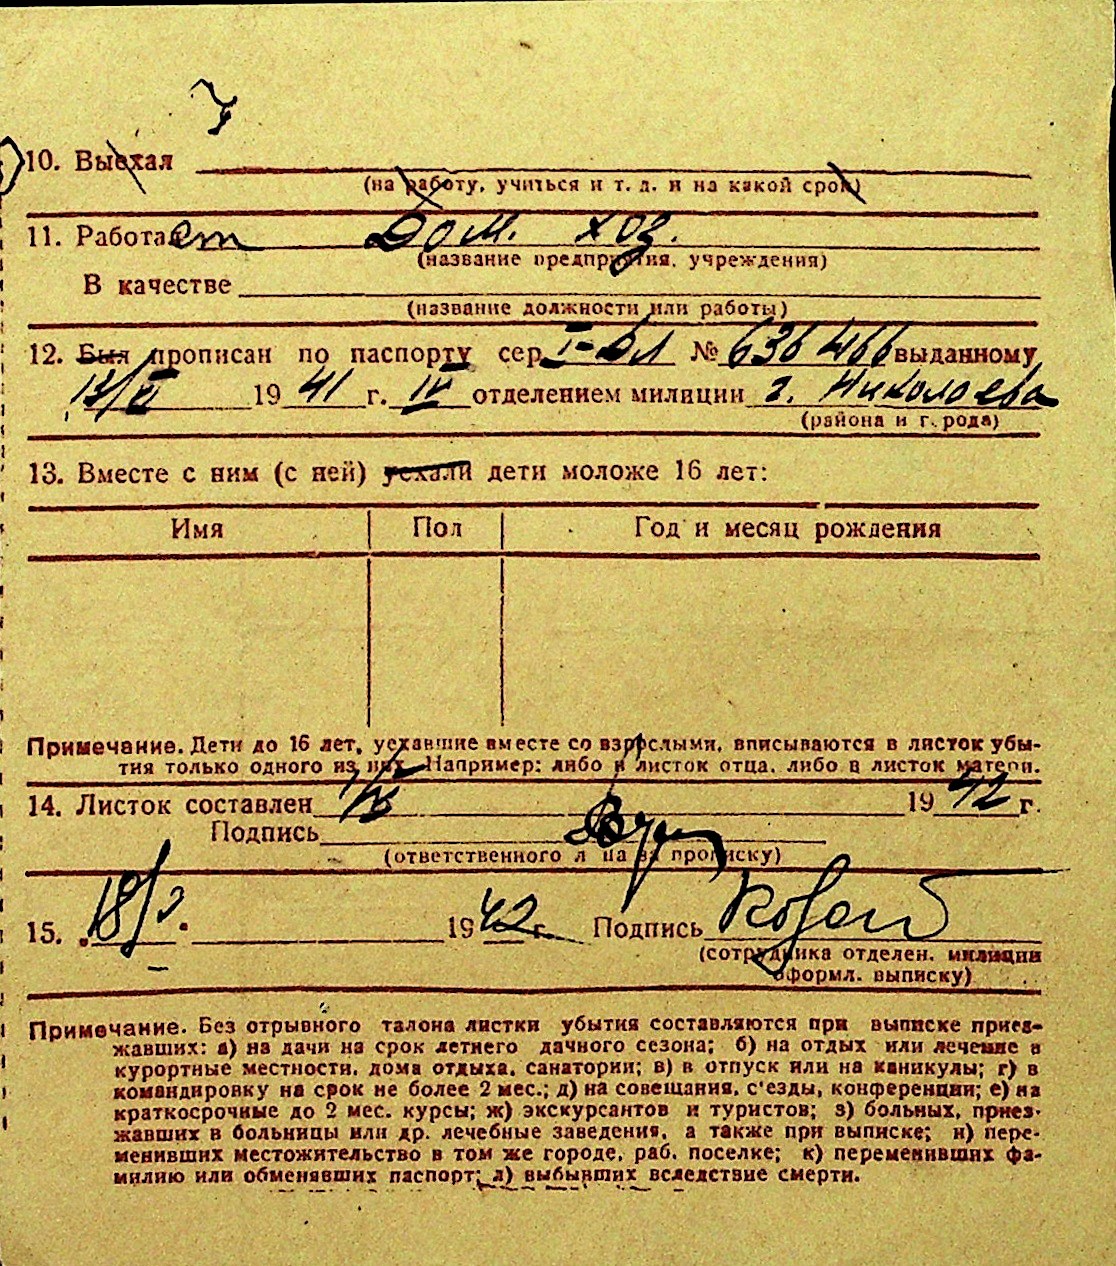 10. Выехал
(на работу, учиться и т. д. и на какой срок)
11. Работает Дом. хоз.
(название предприятия, учреждения)
В качестве
(название должности или работы)
12. Был прописан по паспорту сер. № 636466 выданному
1941 г. IV отделением милиции г. Николаева
(района и города)
13. Вместе с ним (с ней) уехали дети моложе 16 лет:
Имя Пол Год и месяц рождения
Примечание. Дети до 16 лет, уехавшие вместе со взрослыми, вписываются в листок убы-
тия только одного из них. Например: либо в листок отца, либо в листок матери.
14. Листок составлен 1942 г.
Подпись
(ответственного лица за прописку)
15. 1942 г. Подпись
(сотрудника отделен. милиции
оформл. выписку)
Примечание. Без отрывного талона листки убытия составляются при выписке приез-
жавших: а) на дачи на срок летнего дачного сезона; б) на отдых или лечение в
курортные местности, дома отдыха, санатории; в) в отпуск или на каникулы; г) в
командировку на срок не более 2 мес.; д) на совещания, с'езды, конференции; е) на
краткосрочные до 2 мес. курсы; ж) экскурсантов и туристов; з) больных, приез-
жавших в больницы или др. лечебные заведения, а также при выписке; и) пере-
менивших местожительство в том же городе, раб. поселке; к) переменивших фа-
милию или обменявших паспорт; л) выбывших вследствие смерти.